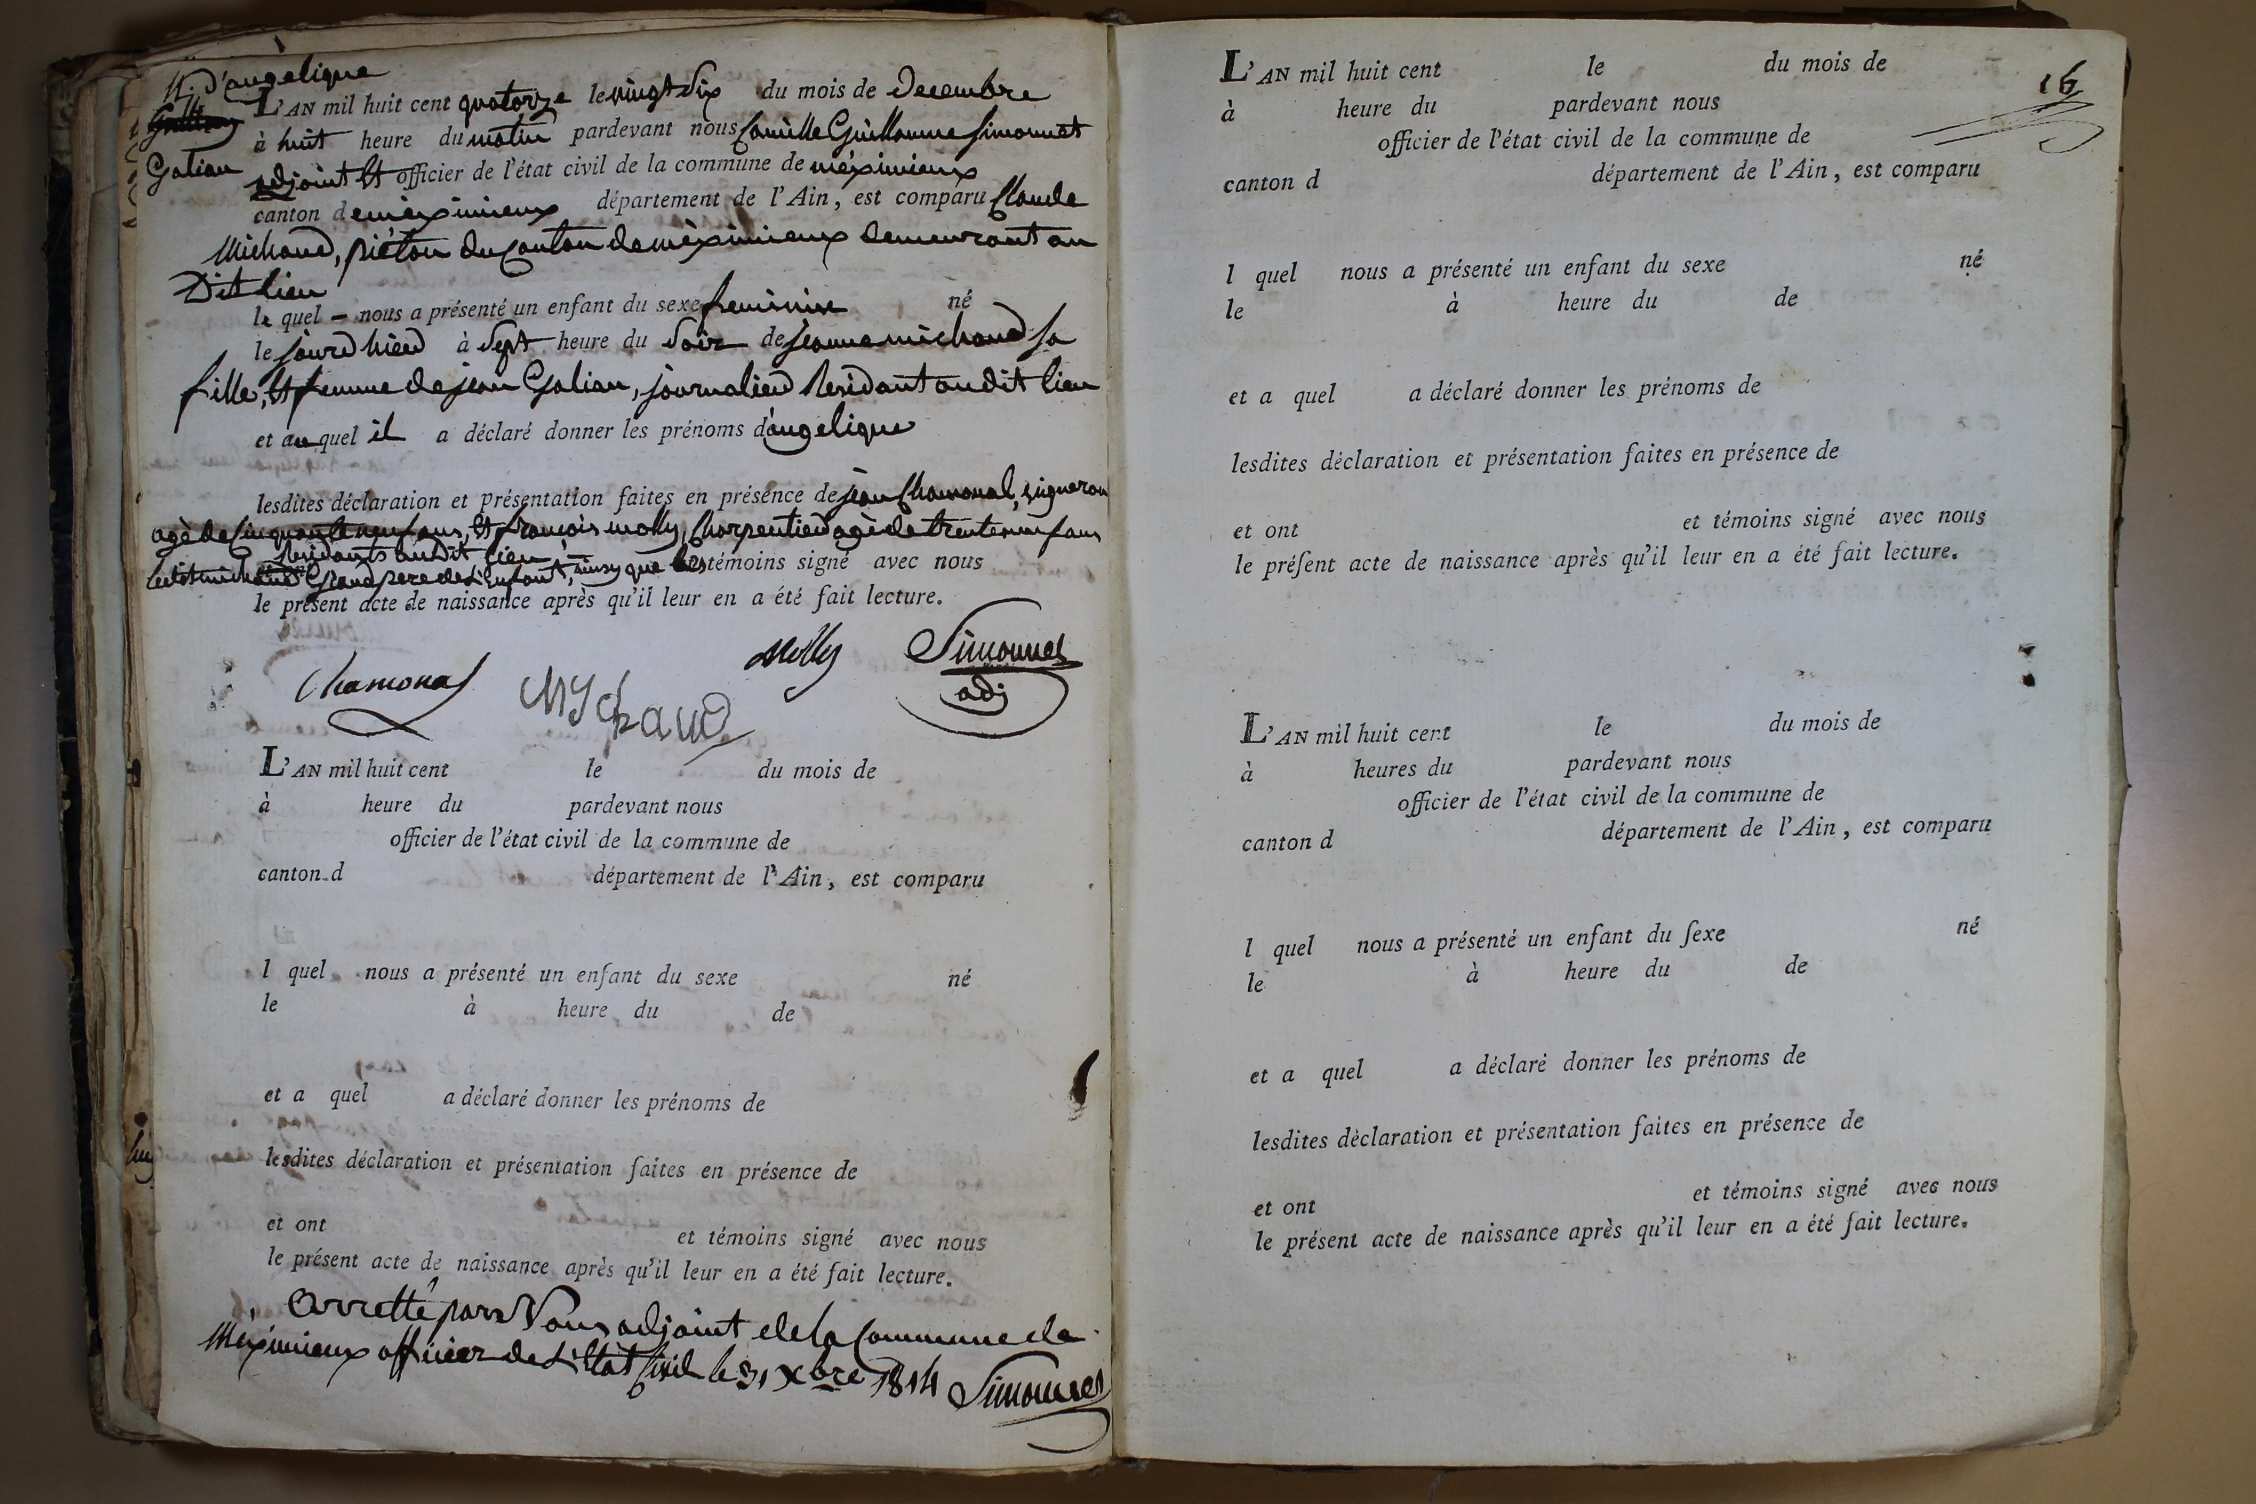 N. d'angelique
Galian
L'AN mil huit cent quatorze le vingt six du mois de Decembre
à huit heure du matin pardevant nous Camille Guillaume Simonnet
adjoint et officier de l'état civil de la commune de méximieux
canton de méximieux département de l'Ain, est comparu Claude
Michaud, piéton du Canton de méximieux demeurant au
Dit lieu
le quel — nous a présenté un enfant du sexe feminin né
le jourd hier à sept heure du soir de jeanne michaud sa
fille, et femme de jean Galian, journalier residant au dit lieu
et au quel il a déclaré donner les prénoms d'angelique
lesdites déclaration et présentation faites en présence de jean Chamonal, vigneron
agè de Cinquante neuf ans, et françois molly, Charpentier agè de trente neuf ans
residants au dit lieu
ledit michaud Grand pere de l'enfant, ainsy que les témoins signé avec nous
le présent acte de naissance après qu'il leur en a été fait lecture.
Chamonal Mychaud Molly Simonnet
adj
L'AN mil huit cent le du mois de
à heure du pardevant nous
officier de l'état civil de la commune de
canton d département de l'Ain, est comparu
l quel nous a présenté un enfant du sexe né
le à heure du de
et a quel a déclaré donner les prénoms de
lesdites déclaration et présentation faites en présence de
et ont et témoins signé avec nous
le présent acte de naissance après qu'il leur en a été fait lecture.
Arretté par Nous adjoint de la Commune de
Méximieux officier de L'Etat Civil le 31 Xbre 1814 Simonnet
16
L'AN mil huit cent le du mois de
à heure du pardevant nous
officier de l'état civil de la commune de
canton d département de l'Ain, est comparu
l quel nous a présenté un enfant du sexe né
le à heure du de
et a quel a déclaré donner les prénoms de
lesdites déclaration et présentation faites en présence de
et ont et témoins signé avec nous
le préſent acte de naissance après qu'il leur en a été fait lecture.
L'AN mil huit cent le du mois de
à heures du pardevant nous
officier de l'état civil de la commune de
canton d département de l'Ain, est comparu
l quel nous a présenté un enfant du ſexe né
le à heure du de
et a quel a déclaré donner les prénoms de
lesdites déclaration et présentation faites en présence de
et ont et témoins signé avec nous
le présent acte de naissance après qu'il leur en a été fait lecture.